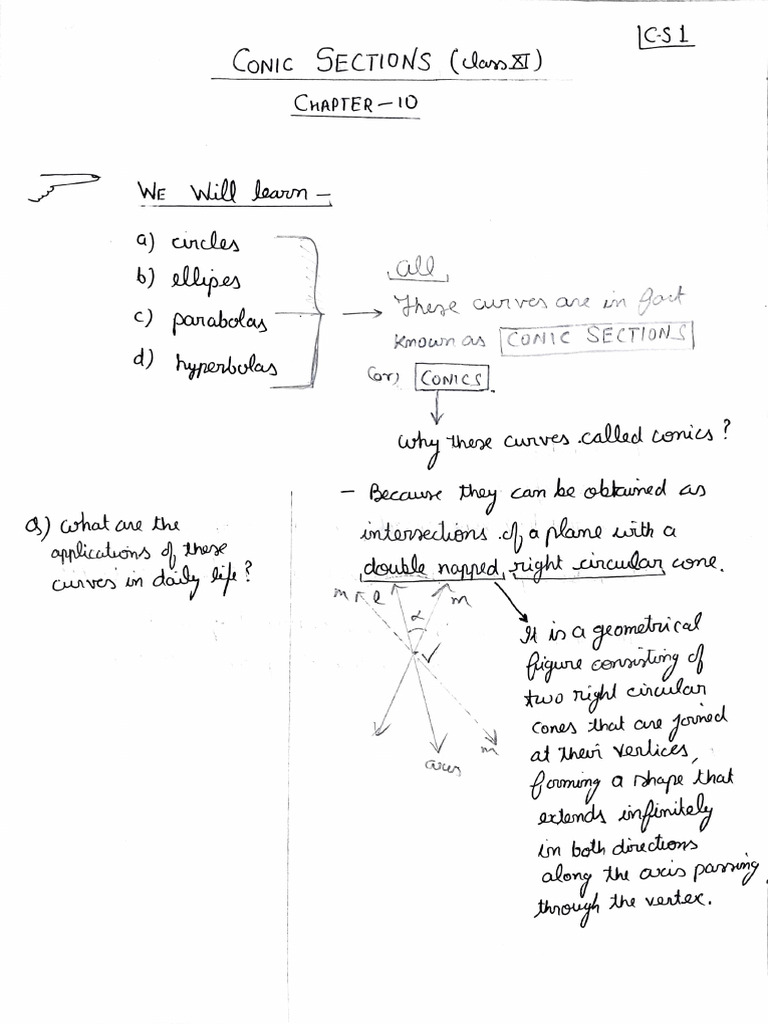 C-S 1
CONIC SECTIONS (class XI)
CHAPTER-10
WE Will learn -
a) circles
b) ellipes
c) parabolas
d) hyperbolas
all
These curves are in fact
known as CONIC SECTIONS
(or) CONICS.
why these curves called conics?
- Because they can be obtained as
intersections of a plane with a
double napped, right circular cone.
Q) what are the
applications of these
curves in daily life?
m l m
α
V
m
axis
It is a geometrical
figure consisting of
two right circular
cones that are joined
at their vertices,
forming a shape that
extends infinitely
in both directions
along the axis passing
through the vertex.